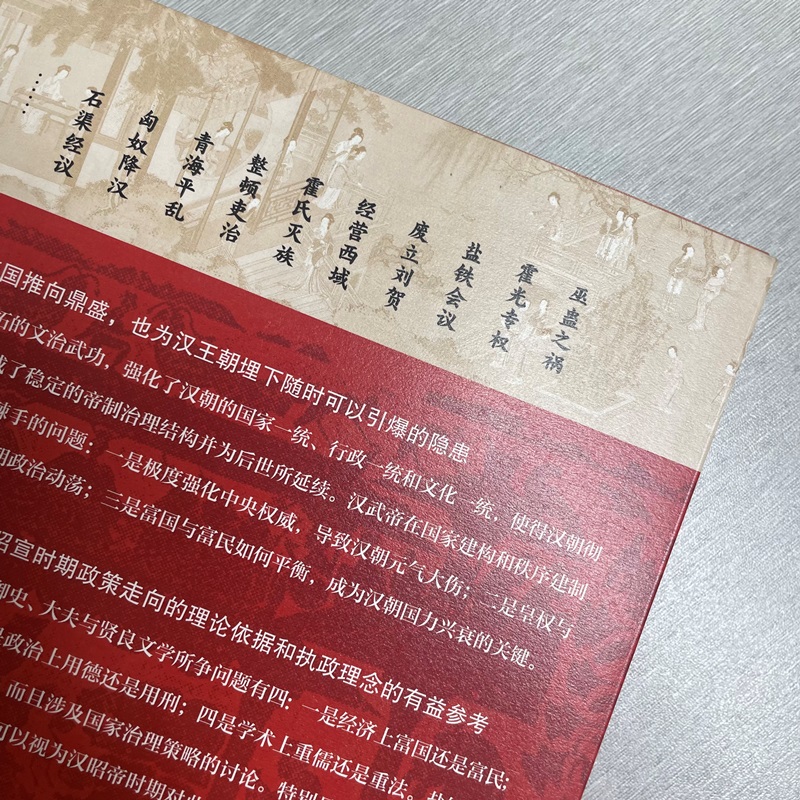 巫蛊之祸
霍光专权
盐铁会议
废立刘贺
经营西域
霍氏灭族
整顿吏治
青海平乱
匈奴降汉
石渠经议
……
国推向鼎盛，也为汉王朝埋下随时可以引爆的隐患
的文治武功，强化了汉朝的国家一统、行政一统和文化一统，使得汉朝彻
了稳定的帝制治理结构并为后世所延续。汉武帝在国家建构和秩序建制
手的问题：一是极度强化中央权威，导致汉朝元气大伤；二是皇权与
政治动荡；三是富国与富民如何平衡，成为汉朝国力兴衰的关键。
昭宣时期政策走向的理论依据和执政理念的有益参考
御史、大夫与贤良文学所争问题有四：一是经济上富国还是富民；
政治上用德还是用刑；四是学术上重儒还是重法。
而且涉及国家治理策略的讨论。特别
可以视为汉昭帝时期对